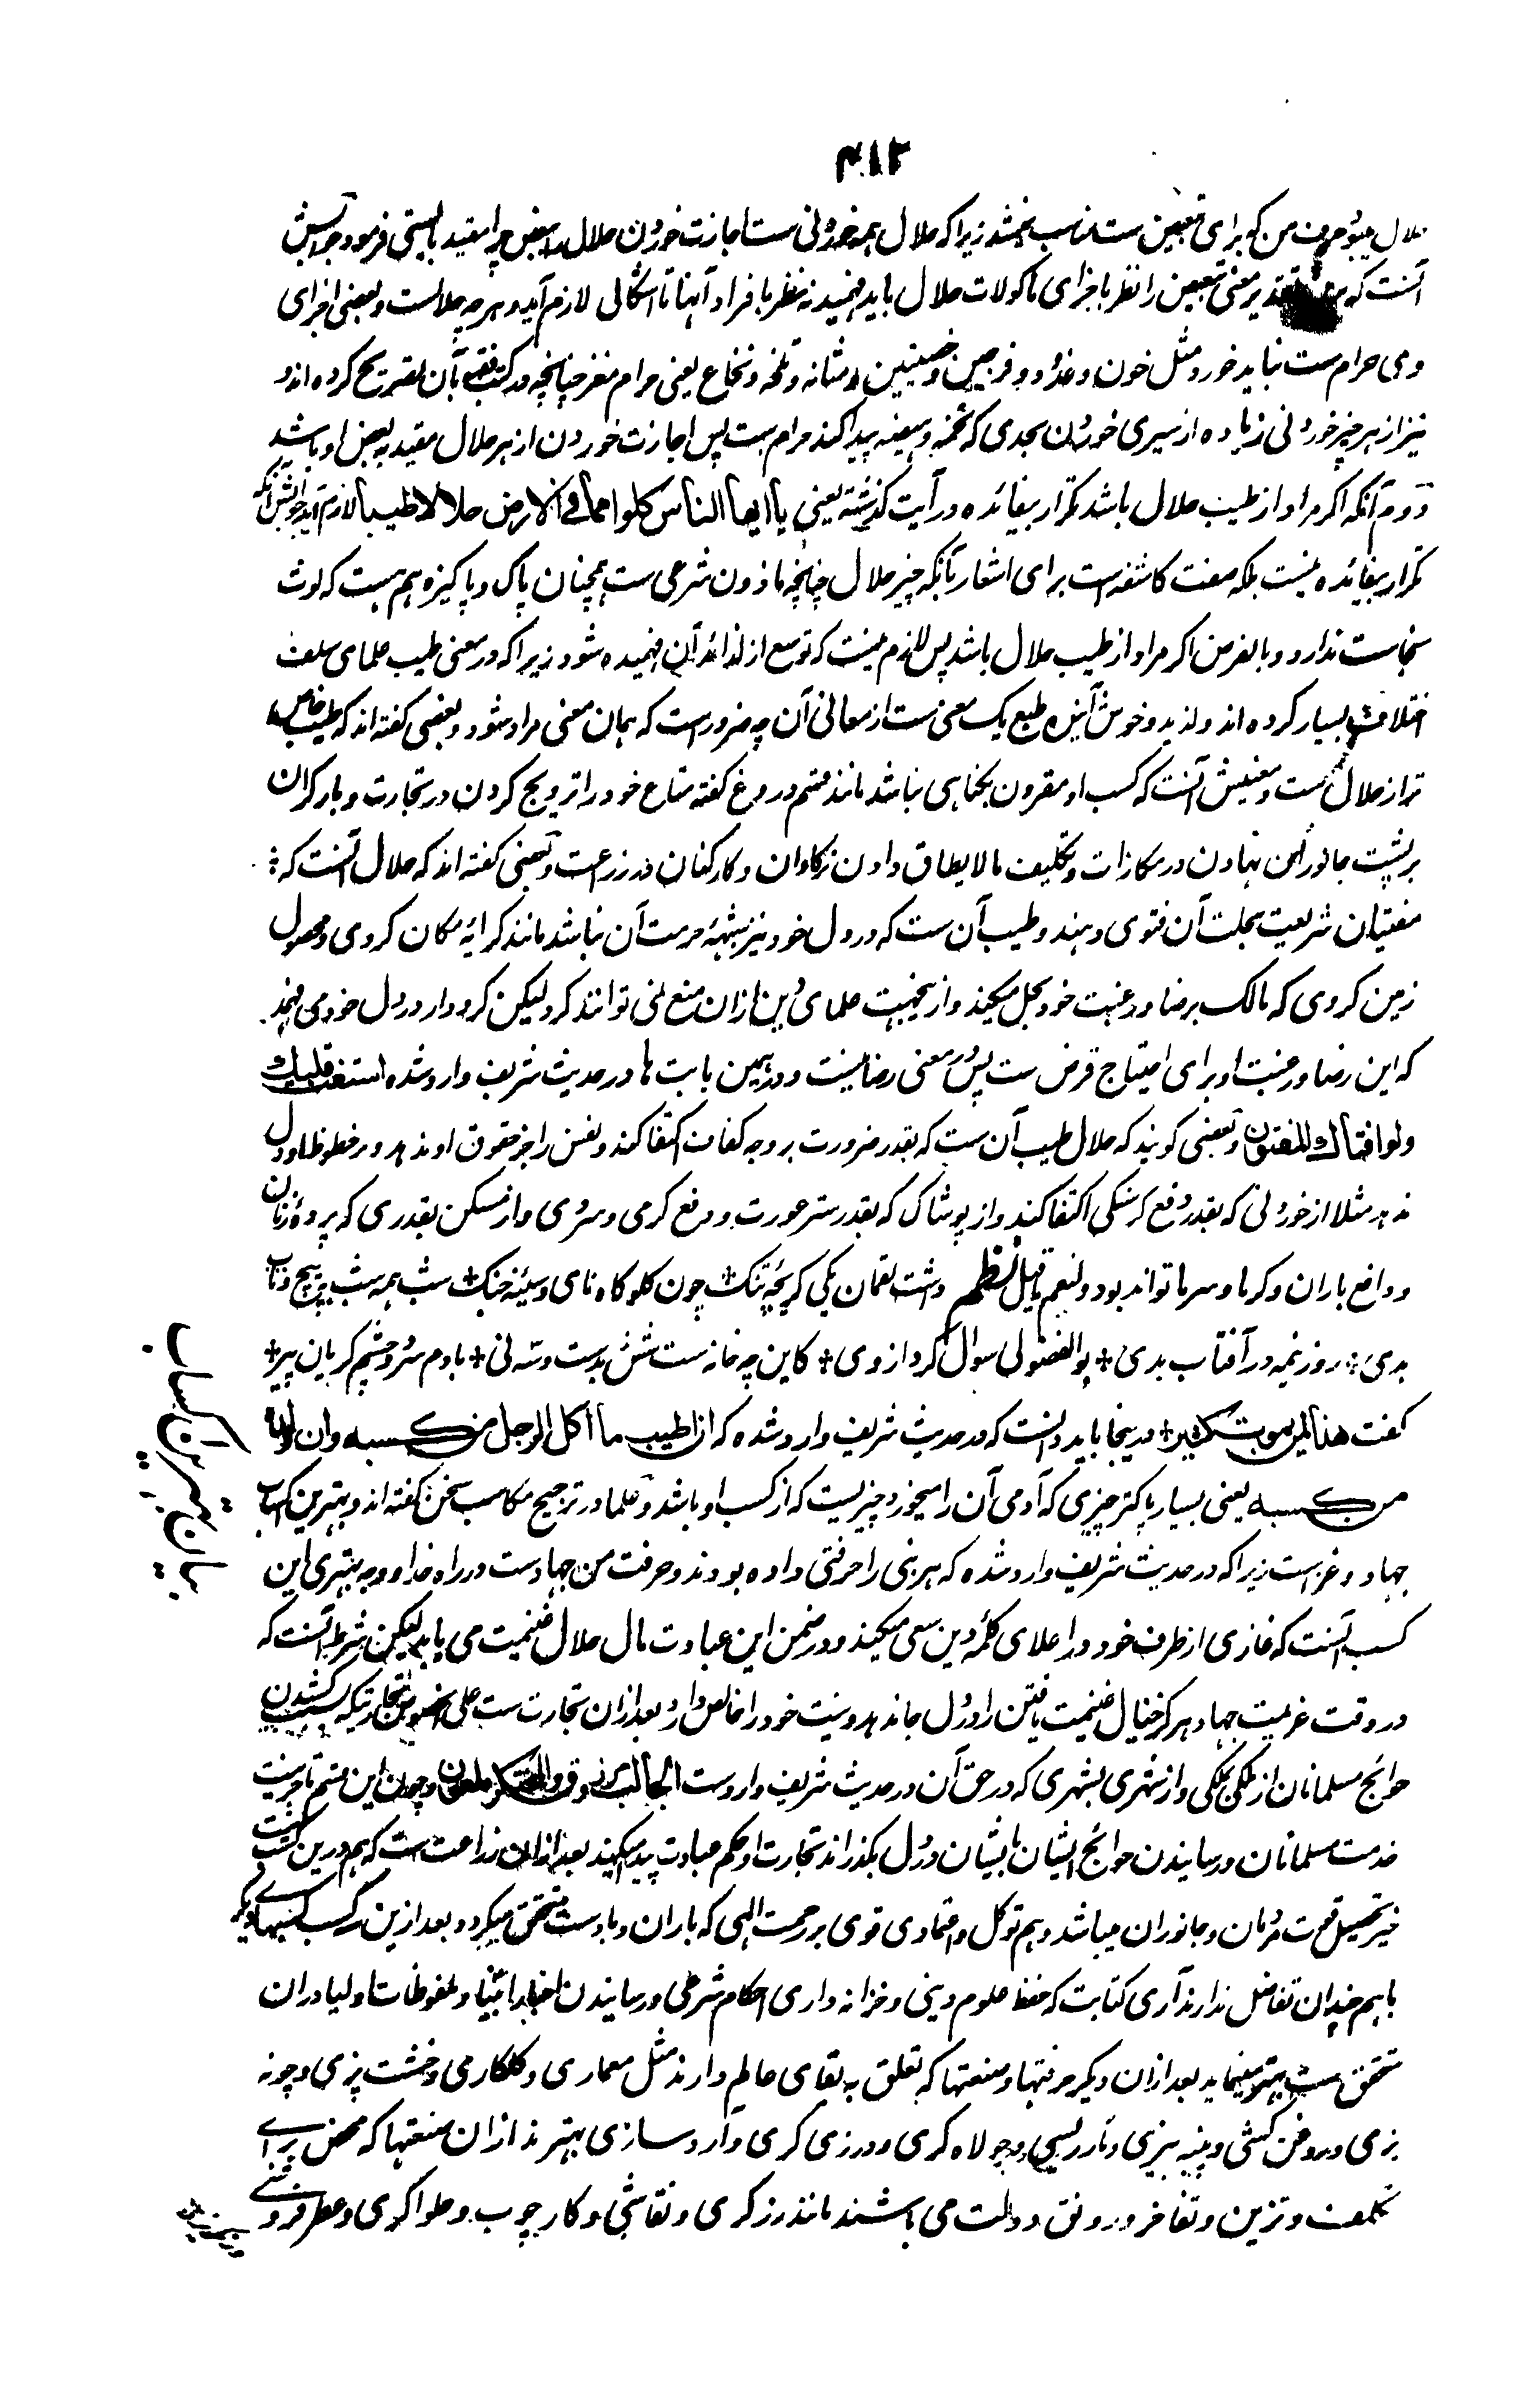 ۴۱۲
حلال میبود حرف من که برای تبعیض ست مناسب نمیشد زیرا که حلال همه خوردنی ست اجازت خوردن حلال به بعض چرا مقید بایستی فرمود جوابش
آنست که تقدیر معنی تبعیض را نظر باجزای ماکولات حلال باید فهمید نه نظر بافراد آنها تا اشکالی لازم آید و هر چه حلالست و بعضی اجزای
وی حرام ست نباید خورد مثل خون و غدود و فرجین و خصیتین و مثانه و تلخه و نخاع یعنی حرام مغز چنانچه در کتب فقه بآن تصریح کرده اند و
نیز از هر چیز خوردنی زیاده از سیری خوردن بحدی که تخمه و هیضه پیدا کند حرام ست پس اجازت خوردن از هر حلال مقید به بعض او باشد
دوم آنکه اگر مراد از طیب حلال باشد تکرار بیفائده در آیت گذشته یعنی یا ایها الناس کلوا مما فی الارض حلالا طیبا لازم آید جوابش آنکه
تکرار بیفائده نیست بلکه صفت کاشفه است برای اشعار بآنکه چیز حلال چنانچه ماذون شرعی ست همچنان پاک و پاکیزه هم هست که لوث
نجاست ندارد و بالفرض اگر مراد از طیب حلال باشد پس لازم نیست که توسع از لذائذ آن فهمیده شود زیرا که در معنی طیب علمای سلف
اختلاف بسیار کرده اند و لذیذ و خوش آینده طبع یک معنی ست از معانی آن چه ضرور است که همان معنی مراد شود و بعضی گفته اند که طیب خاص
تر از حلال ست و معنیش آنست که کسب او مقرون بگناهی نباشد مانند قسم دروغ گفته متاع خود را ترویج کردن در تجارت و بار گران
بر پشت جانوران نهادن در مکازات و تکلیف ما لا یطاق دادن نرگاوان و کارکنان در زراعت و بعضی گفته اند که حلال آنست که
مفتیان شریعت بحلت آن فتوی دهند و طیب آن ست که در دل خود نیز شبهۀ حرمت آن نباشد مانند کرایۀ مکان گروی و محصول
زمین گروی که مالک برضا و رغبت خود بحل میکند و ازینجهت علمای دین ازان منع نمی توانند کرد لیکن گرودار در دل خود می فهمد
که این رضا و رغبت او برای احتیاج قرض ست پس در معنی رضا نیست و در همین بابت ها در حدیث شریف وارد شده استفت قلبک
ولو افتاک المفتون و بعضی گویند که حلال طیب آن ست که بقدر ضرورت بر وجه کفاف اکتفا کند و نفس را جز حقوق او ندهد و در حظوظ او دل
ندهد مثلا از خوردنی که بقدر دفع گرسنگی اکتفا کند و از پوشاک که بقدر ستر عورت و دفع گرمی و سردی و از مسکن بقدری که پردۀ زنان
و دافع باران و گرما و سرما تواند بود و لنعم ما قیل نظم داشت لقمان یکی کریچۀ تنگ * چون گلوگاه نای و سینۀ چنگ * شب همه شب به پیچ و تاب
بدی * روز نیمه در آفتاب بدی * بوالفضولی سوال کرد از وی * کاین چه خانه ست شش بدست و سه نی * با دم سرد و چشم گریان پیر *
گفت هذا لمن یموت کثیر * درینجا باید دانست که در حدیث شریف وارد شده که ان اطیب ما أکل الرجل من کسبه وان ولده
من کسبه یعنی بسیار پاکتر چیزی که آدمی آن را میخورد چیزیست که از کسب او باشد و علما در ترجیح مکاسب سخن گفته اند و بهترین کسب
جهاد و غزاست زیرا که در حدیث شریف وارد شده که هر نبی را حرفتی داده بودند و حرفت من جهادست در راه خدا و وجه بهتری این
کسب آنست که غازی از طرف خود در اعلای کلمۀ دین سعی میکند و در ضمن این عبادت مال حلال غنیمت می یابد لیکن شرط آنست که
در وقت عزیمت جهاد هرگز خیال غنیمت یافتن را در دل جا ندهد و نیت خود را خالص دارد بعد ازان تجارت ست علی الخصوص تجارتیکه سبب کشیدن
حوائج مسلمانان از ملکی بملکی و از شهری بشهری که در حق آن در حدیث شریف واردست الجالب مرزوق والمحتکر ملعون و چون این قسم تاجر نیت
خدمت مسلمانان و رسانیدن حوائج ایشان بایشان در دل بگذراند تجارت او حکم عبادت پیدا میکند بعد ازان زراعت ست که هم درین کسب نیت
خیر تحصیل قوت مردمان و جانوران میباشد و هم توکل و اعتمادی قوی بر رحمت الهی که باران و بادست متحقق میگردد و بعد ازین کسب کسبهای دیگر
باهم چندان تفاضل ندارند آری کتابت که حفظ علوم دینی و خزانه داری احکام شرعی و رسانیدن اخبار انبیا و ملفوظات اولیا دران
متحقق ست بهتر مینماید بعد ازان دیگر حرفتها و صنعتها که تعلق به بقای عالم دارند مثل معماری و گلکاری و خشت پزی و چونه
پزی و روغن کشی و پنبه ریزی و تارریسی و جولاه گری و درزی گری و آردسازی بهترند ازان صنعتها که محض برای
تکلف و تزین و تفاخر و رونق دولت می باشند مانند زرگری و نقاشی و کار چوب و حلواگری و عطرفروشی
بیان بهترین کسب